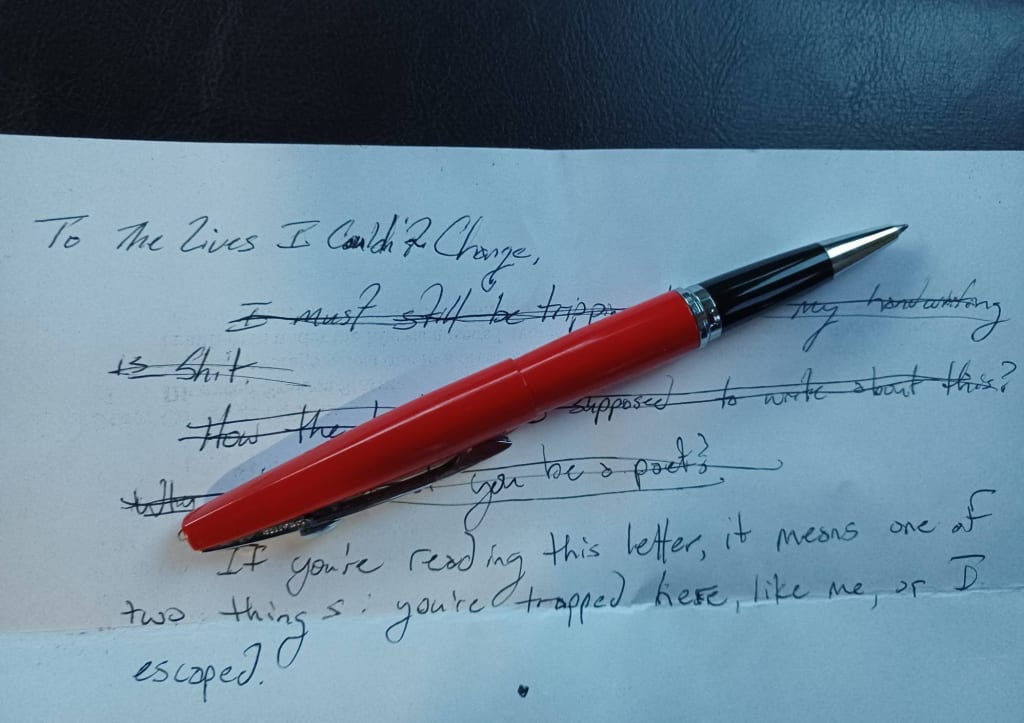 To The Lives I Couldn't Change,
I must still be my handwriting
is shit.
How the supposed to write about this?
Why you be a poet?
If you're reading this letter, it means one of
two things: you're trapped here, like me, or I
escaped.